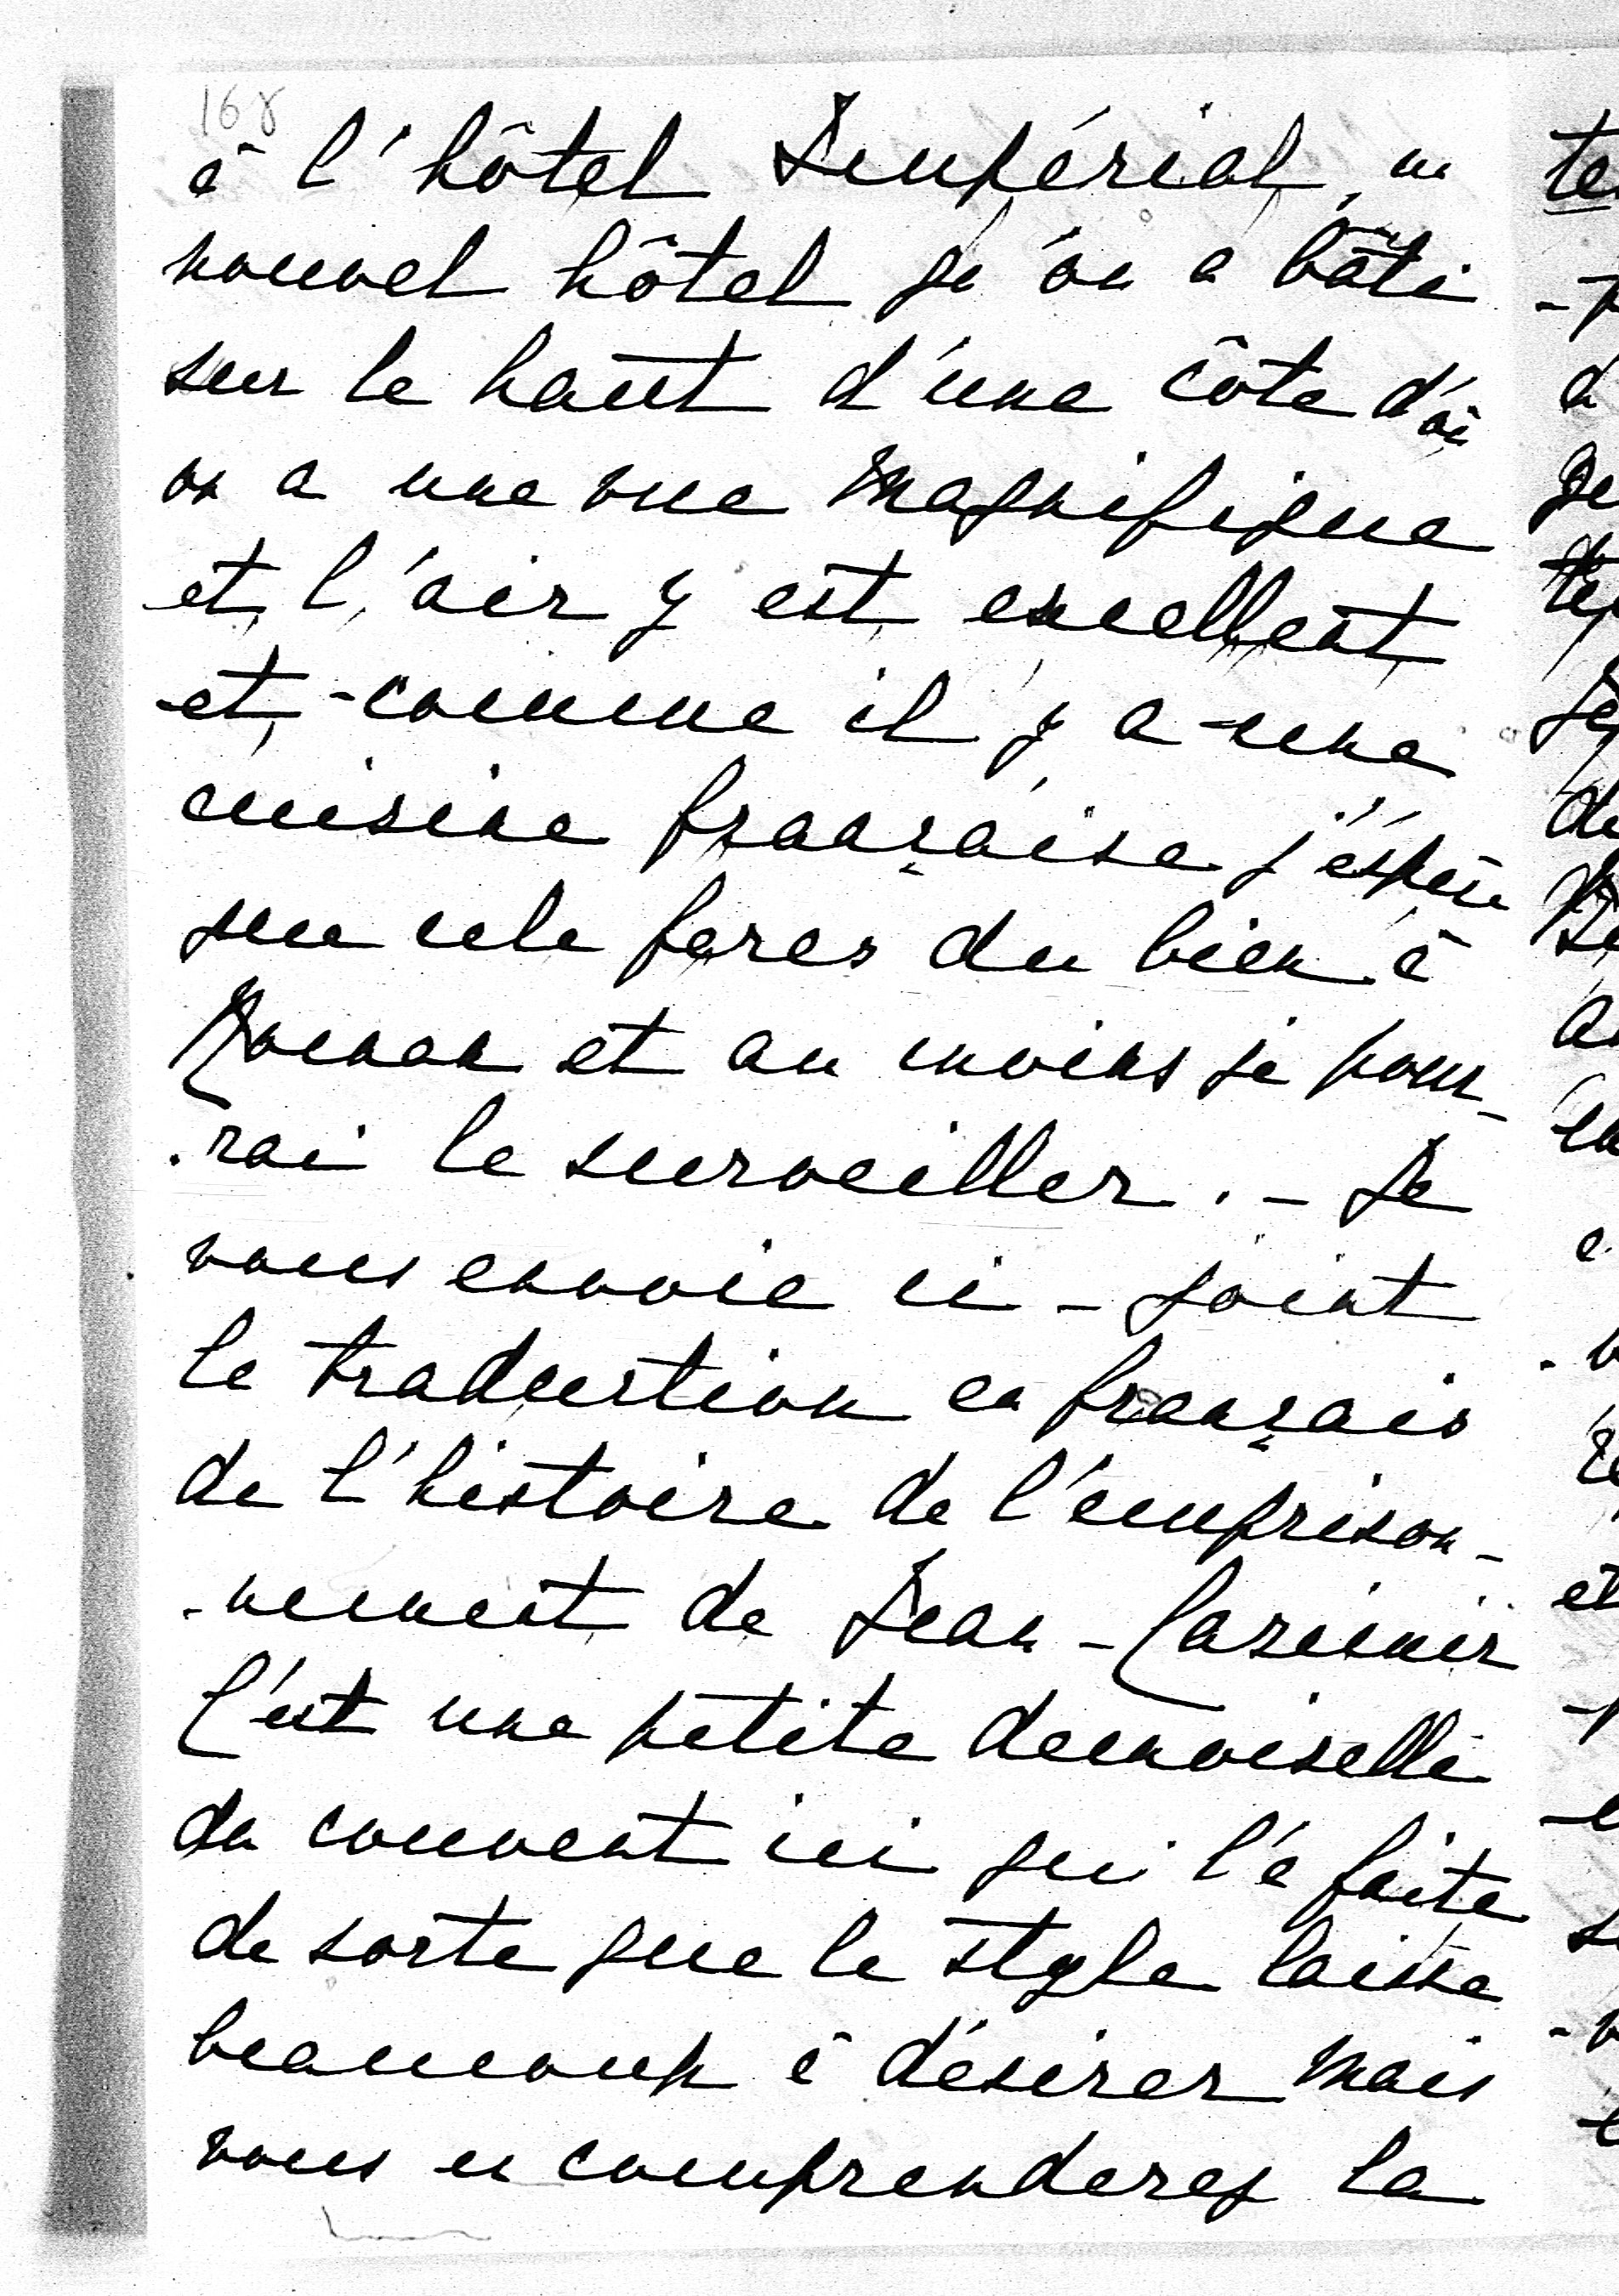 168
à l'hôtel Impérial, un
nouvel hôtel qu'on a bâti
sur le haut d'une côte d'où
on a une vue magnifique
et l'air y est excellent
et comme il y a une
cuisine française j'espère
que cela feras du bien à
Maman et au moins je pour-
-rai la surveiller. - Je
vous envoie ci-joint
la traduction en français
de l'histoire de l'emprison-
-nement de Jean-Casimir
C'est une petite demoiselle
du couvent ici qui l'a faite
de sorte que le style laisse
beaucoup à désirer mais
vous en comprenderez la